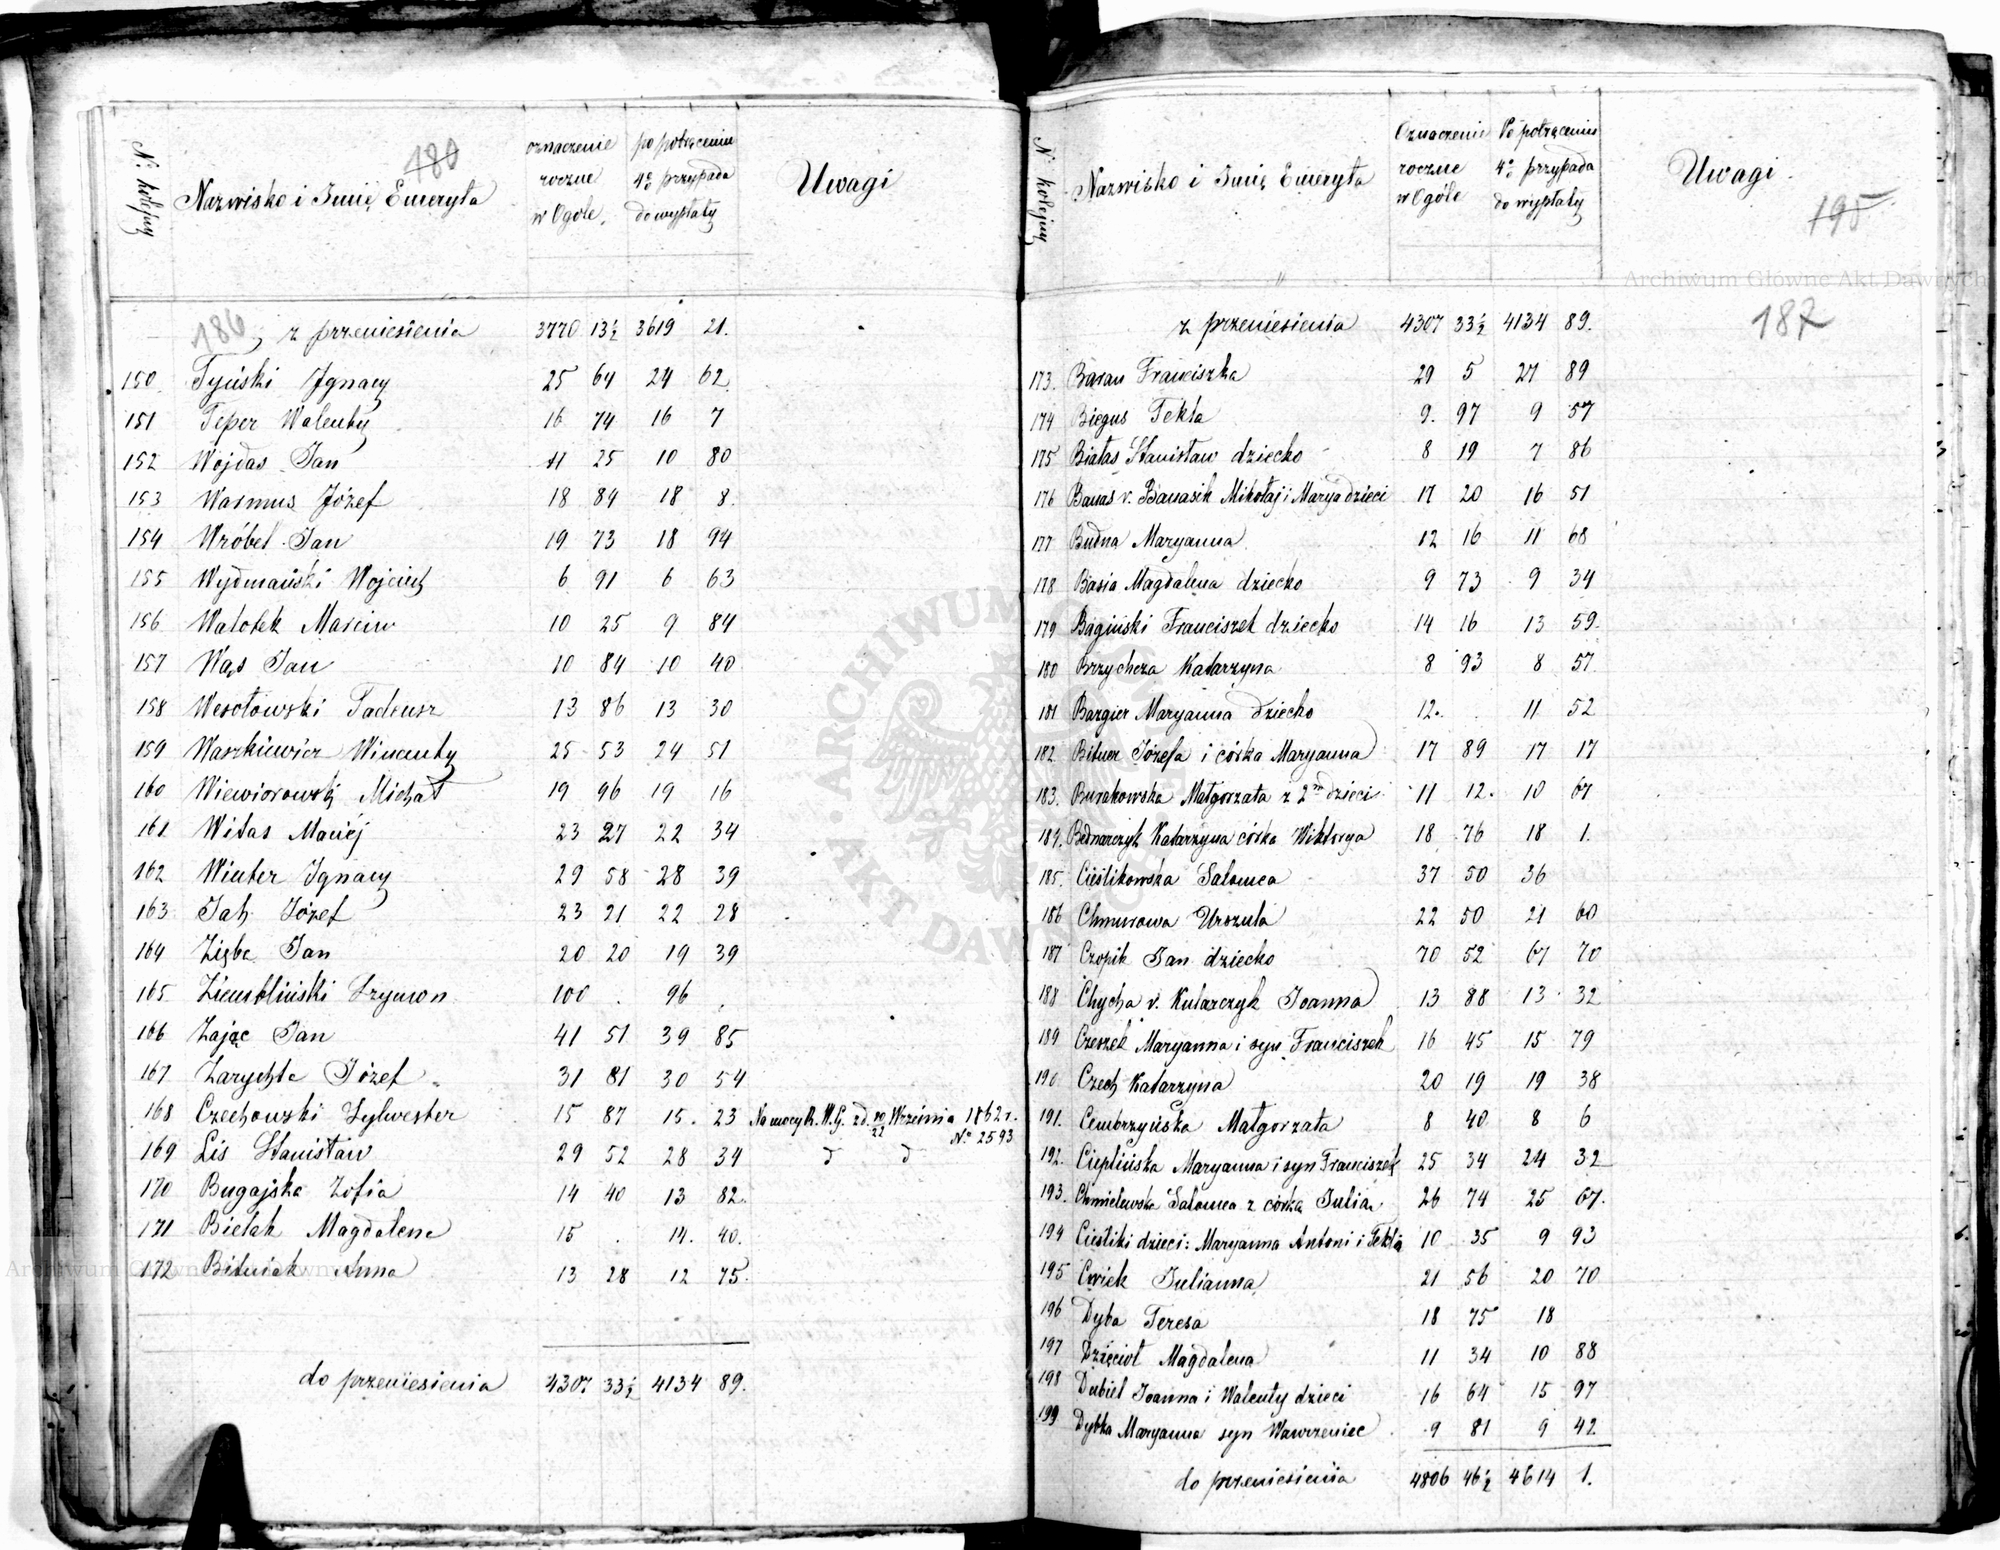 180
N: kolejny
Nazwisko i Imię Emeryta
oznaczenie roczne w Ogóle.
po potrąceniu 4% przypada do wypłaty
Uwagi
186
z przeniesienia 3770 13½ 3619 21.
150 Tyński Ignacy 25 64 24 62
151 Teper Walenty 16 74 16 7
152 Wojdas Jan 11 25 10 80
153 Warmus Józef 18 84 18 8.
154 Wróbel Jan 19 73 18 94
155 Wydmański Wojciech 6 91 6 63
156 Walotek Marcin 10 25 9 84
157 Wąs Jan 10 84 10 40
158 Wesołowski Tadeusz 13 86 13 30
159 Waszkiewicz Wincenty 25 53 24 51
160 Wiewiorowski Michał 19 96 19 16
161 Witas Maciej 23 27 22 34
162 Winter Ignacy 29 58 28 39
163 Jah Józef 23 21 22 28
164 Zięba Jan 20 20 19 39
165 Ziembliński Szymon 100 . 96 .
166 Zając Jan 41 51 39 85
167 Zarychta Józef 31 81 30 54
168 Czechowski Sylwester 15 87 15. 23 Na mocy R. W. G. z d. 10/22 Września 1862 r. N° 2593
169 Lis Stanisław 29 52 28 34 d d
170 Bugajska Zofia 14 40 13 82.
171 Bielak Magdalena 15 . 14. 40.
172 Bitniak Anna 13 28 12 75.
do przeniesienia 4307 33½ 4134 89.
N: kolejny
Nazwisko i Imię Emeryta
Oznaczenie roczne w Ogóle
Po potrąceniu 4% przypada do wypłaty
Uwagi
195
187
z przeniesienia 4307 33½ 4134 89.
173. Baran Franciszka 29 5 27 89
174 Biegus Tekla 9. 97 9 57
175 Białas Stanisław dziecko 8 19 7 86
176 Banas v. Banasik Mikołaj i Marya dzieci 17 20 16 51
177 Budna Maryanna 12 16 11 68
178 Basia Magdalena dziecko 9 73 9 34
179 Bagiński Franciszek dziecko 14 16 13 59.
180 Brzychcza Katarzyna 8 93 8 57
181 Bargier Maryanna dziecko 12. . 11 52
182 Bitner Józefa i córka Maryanna 17 89 17 17
183. Burakowska Małgorzata z 2m dzieci 11 12. 10 67
184. Bednarczyk Katarzyna córka Wiktorya 18 76 18 1.
185. Cieślikowska Salomea 37 50 36
186 Chmurowa Urszula 22 50 21 60
187 Czopik Jan dziecko 70 52 67 70
188 Chycha v. Kularczyk Joanna 13 88 13 32
189 Czeszek Maryanna i syn Franciszek 16 45 15 79
190 Czech Katarzyna 20 19 19 38
191. Cembrzyńska Małgorzata 8 40 8 6
192. Cieplińska Maryanna i syn Franciszek 25 34 24 32
193. Chmielewska Salomea z córką Julią 26 74 25 67.
194 Cieśliki dzieci: Maryanna Antoni i Tekla 10 35 9 93
195 Cwiek Julianna 21 56 20 70
196 Dyba Teresa 18 75 18
197 Dzięcioł Magdalena 11 34 10 88
198 Dubiel Joanna i Walenty dzieci 16 64 15 97
199 Dybka Maryanna syn Wawrzeniec 9 81 9 42
do przeniesienia 4806 46½ 4614 1.
ARCHIWUM GŁÓWNE AKT DAWNYCH
Archiwum Główne Akt Dawnych
Archiwum Główne Akt Dawnych